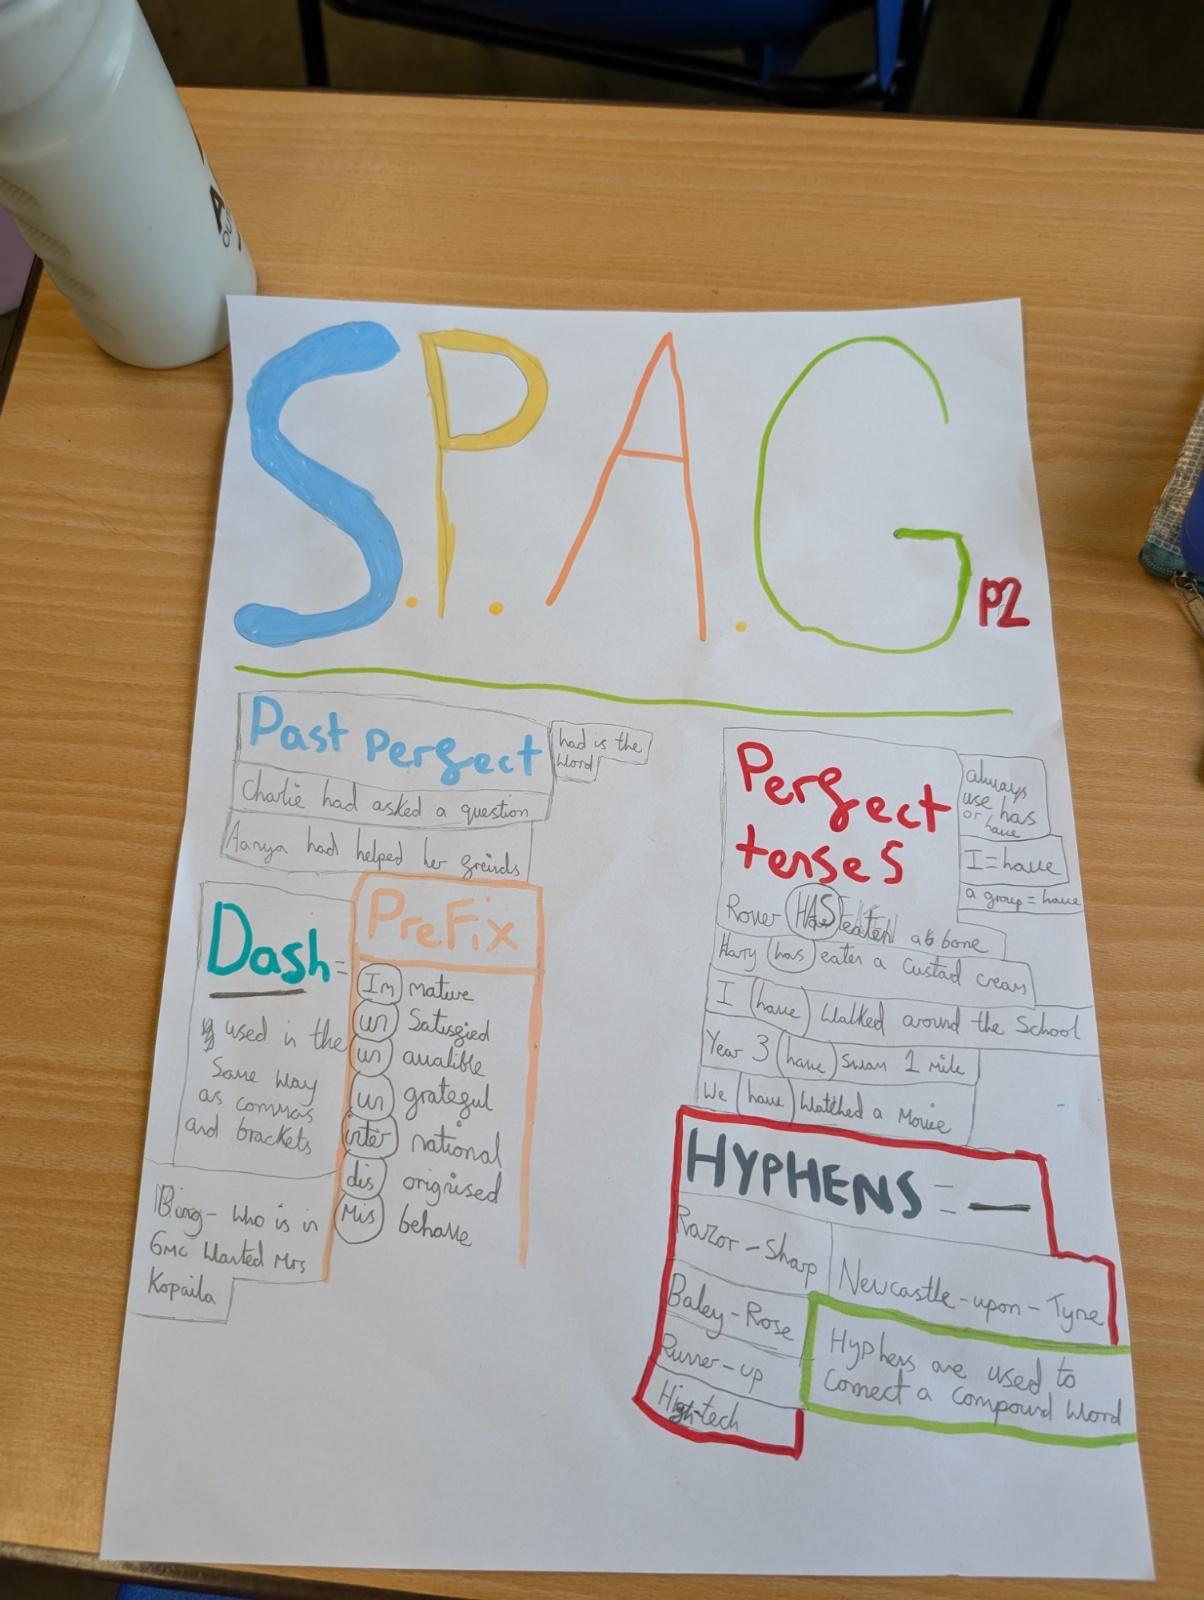 S.P.A.G
P2
Past perfect
had is the
word
Charlie had asked a question
Aanya had helped her greinds
Dash =
used in the
Same way
as commas
and brackets
Bing - who is in
GMC Wanted Mrs
Kopaila
PreFix
Im mature
un Satisgied
un avalible
un grategul
inter national
dis orignised
Mis behave
Pergect
tenses
always
use has
or have
I = have
a group = have
Rover HAS eaten a bone
Harry has eaten a Custard cream
I have Walked around the School
Year 3 have Swam 1 mile
We have Watched a Movie
HYPHENS = —
Razor-Sharp
Newcastle-upon-Tyne
Baley-Rose
Runner-up
High-tech
Hyphens are used to
Connect a Compound Word